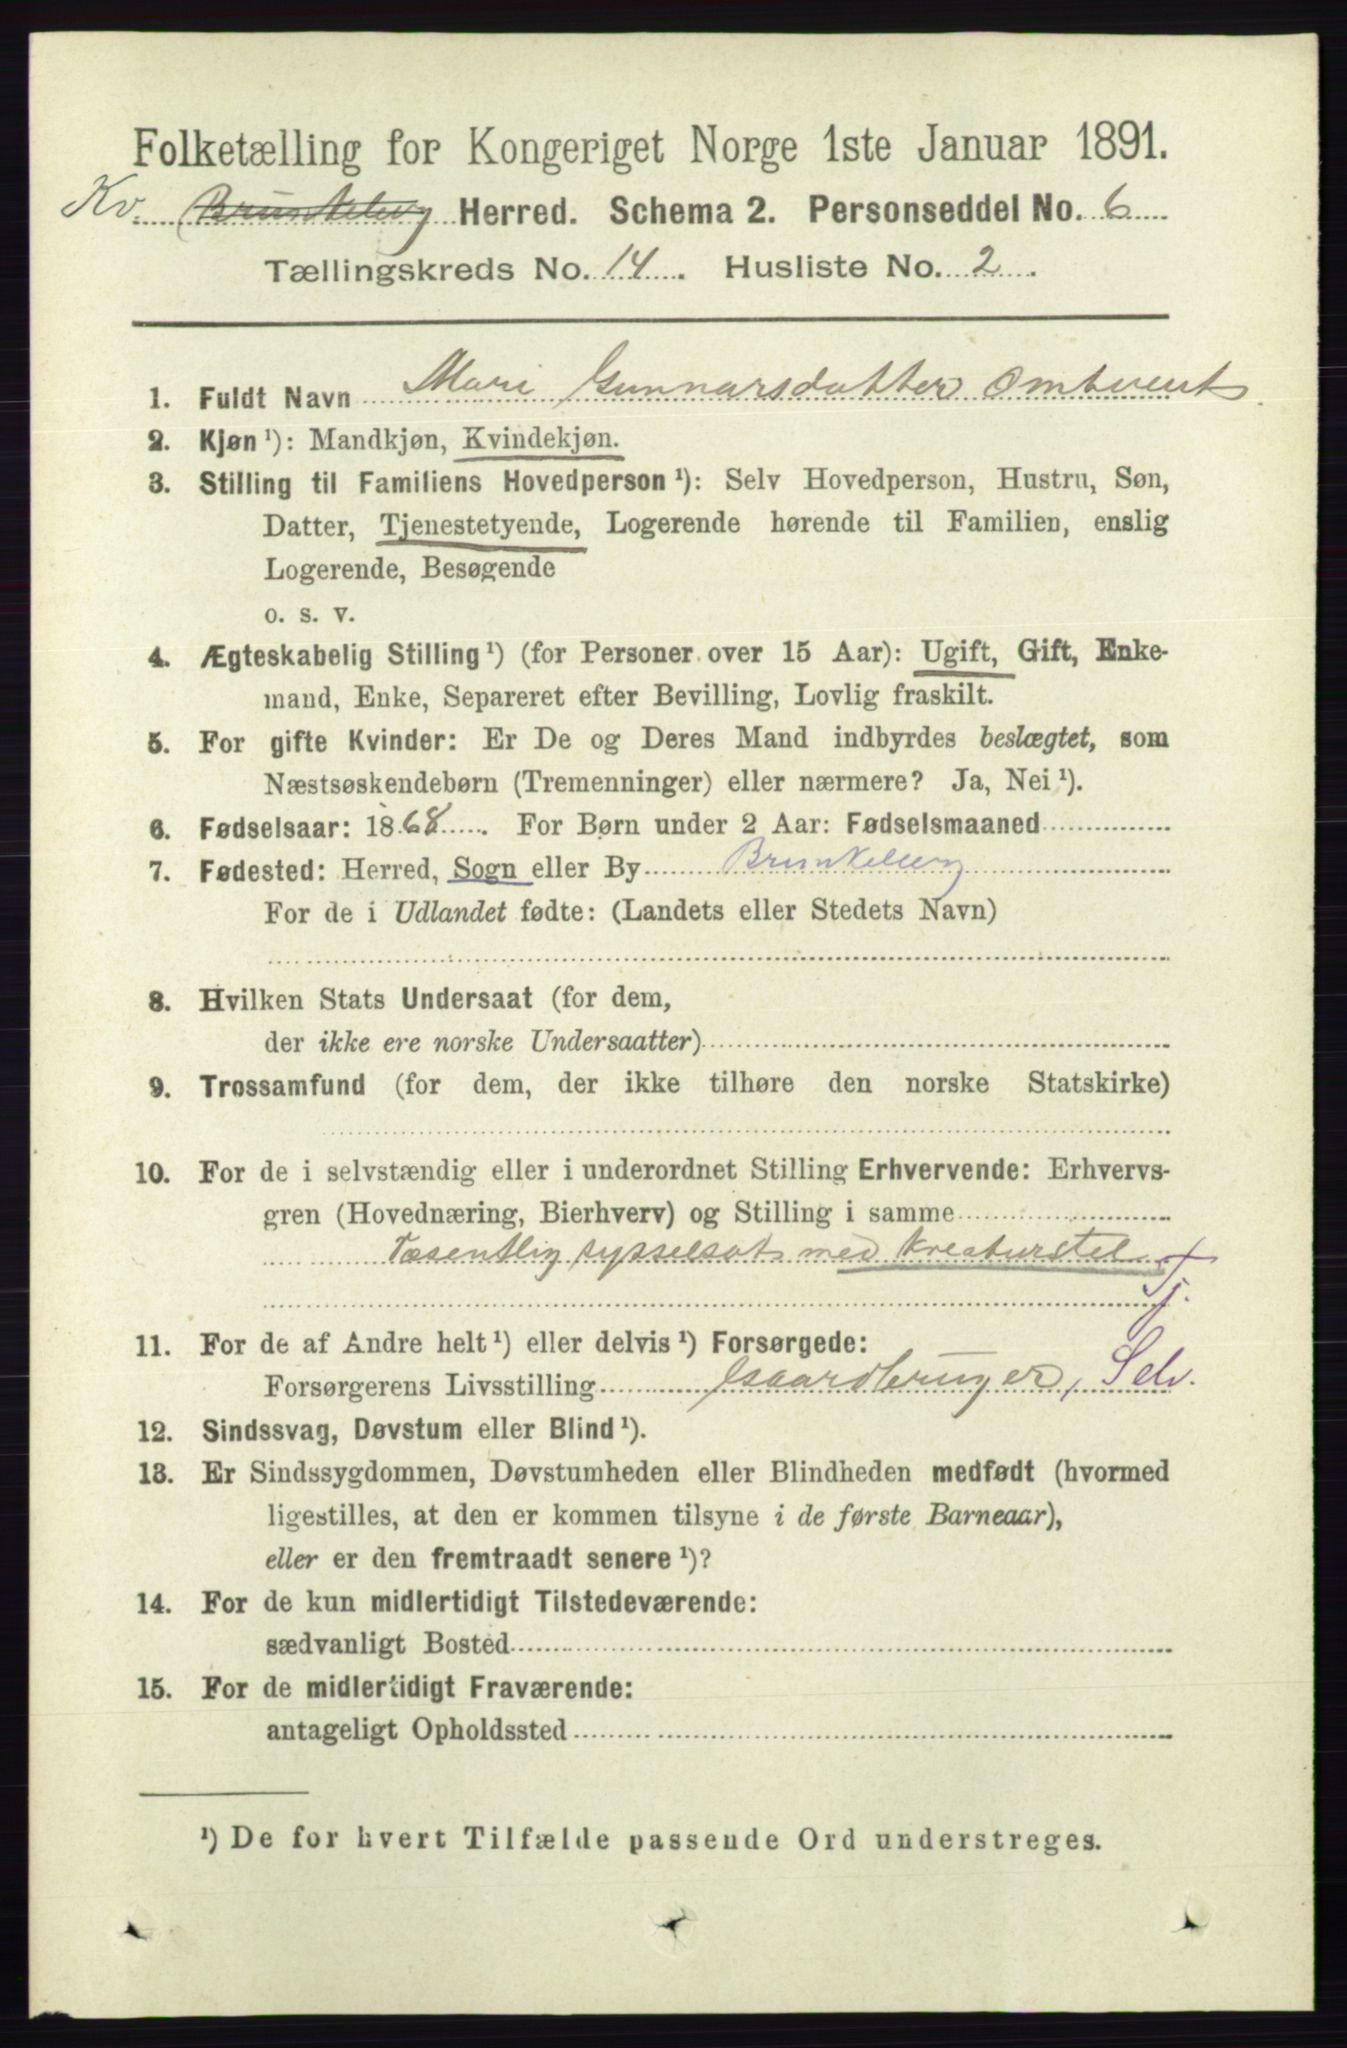 Folketælling for Kongeriget Norge 1ste Januar 1891.
Kv. Brunkeberg Herred. Schema 2. Personseddel No. 6
Tællingskreds No. 14. Husliste No. 2.
1. Fuldt Navn Mari Gunnarsdatter Omtveit
2. Kjøn ¹): Mandkjøn, Kvindekjøn.
3. Stilling til Familiens Hovedperson ¹): Selv Hovedperson, Hustru, Søn,
Datter, Tjenestetyende, Logerende hørende til Familien, enslig
Logerende, Besøgende
o. s. v.
4. Ægteskabelig Stilling ¹) (for Personer over 15 Aar): Ugift, Gift, Enke-
mand, Enke, Separeret efter Bevilling, Lovlig fraskilt.
5. For gifte Kvinder: Er De og Deres Mand indbyrdes beslægtet, som
Næstsøskendebørn (Tremenninger) eller nærmere? Ja, Nei ¹).
6. Fødselsaar: 1868. For Børn under 2 Aar: Fødselsmaaned
7. Fødested: Herred, Sogn eller By Brunkeberg
For de i Udlandet fødte: (Landets eller Stedets Navn)
8. Hvilken Stats Undersaat (for dem,
der ikke ere norske Undersaatter)
9. Trossamfund (for dem, der ikke tilhøre den norske Statskirke)
10. For de i selvstændig eller i underordnet Stilling Erhvervende: Erhvervs-
gren (Hovednæring, Bierhverv) og Stilling i samme
Væsentlig sysselsat med Kreaturstel
Tj.
11. For de af Andre helt ¹) eller delvis ¹) Forsørgede:
Forsørgerens Livsstilling Gaardbruger, Selv.
12. Sindssvag, Døvstum eller Blind ¹).
13. Er Sindssygdommen, Døvstumheden eller Blindheden medfødt (hvormed
ligestilles, at den er kommen tilsyne i de første Barneaar),
eller er den fremtraadt senere ¹)?
14. For de kun midlertidigt Tilstedeværende:
sædvanligt Bosted
15. For de midlertidigt Fraværende:
antageligt Opholdssted
¹) De for hvert Tilfælde passende Ord understreges.